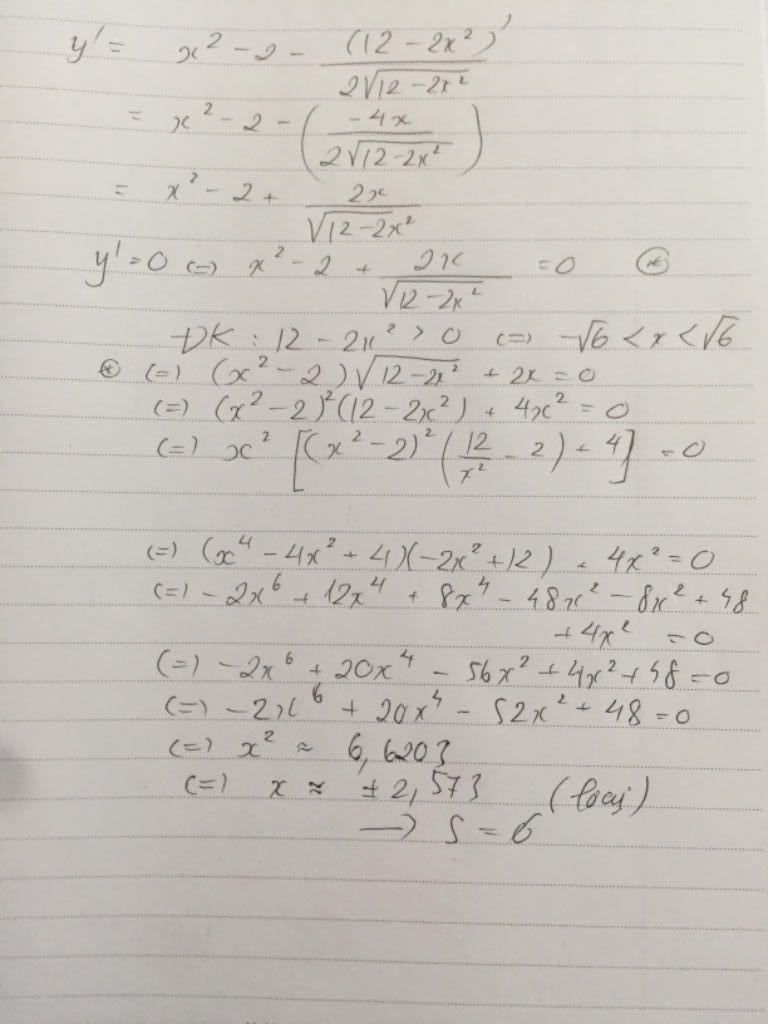 y' = x² - 2 - (12 - 2x²)' / 2√(12 - 2x²)
= x² - 2 - ( -4x / 2√(12-2x²) )
= x² - 2 + 2x / √(12-2x²)
y' = 0 (=) x² - 2 + 2x / √(12-2x²) = 0 (*)
ĐK : 12 - 2x² > 0 (=) -√6 < x < √6
(*) (=) (x² - 2)√(12-2x²) + 2x = 0
(=) (x² - 2)²(12 - 2x²) + 4x² = 0
(=) x² [(x² - 2)² (12/x² - 2) + 4] = 0
(=) (x⁴ - 4x² + 4)(-2x² + 12) + 4x² = 0
(=) -2x⁶ + 12x⁴ + 8x⁴ - 48x² - 8x² + 48
+ 4x² = 0
(=) -2x⁶ + 20x⁴ - 56x² + 4x² + 48 = 0
(=) -2x⁶ + 20x⁴ - 52x² + 48 = 0
(=) x² ≈ 6,6203
(=) x ≈ ± 2,573 (loại)
→ S = 6